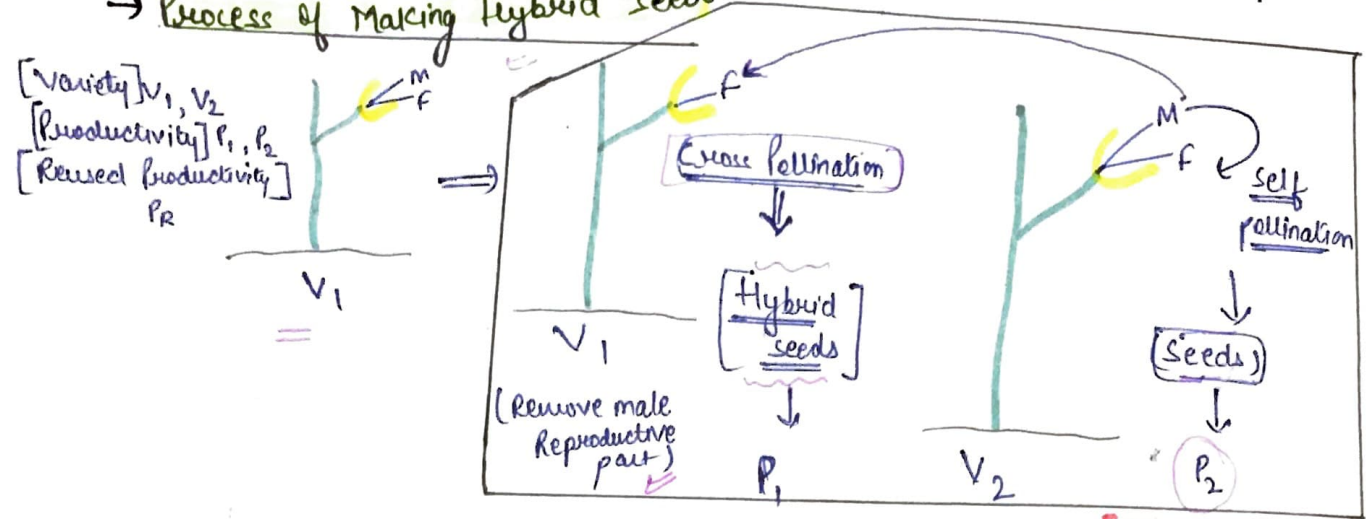 → Process of Making Hybrid Seeds
[Variety] V1, V2
[Productivity] P1, P2
[Reused Productivity]
PR
M
F
V1
F
Cross Pollination
Hybrid
seeds
P1
V1
(Remove male
Reproductive
part)
M
F
self
pollination
(Seeds)
P2
V2